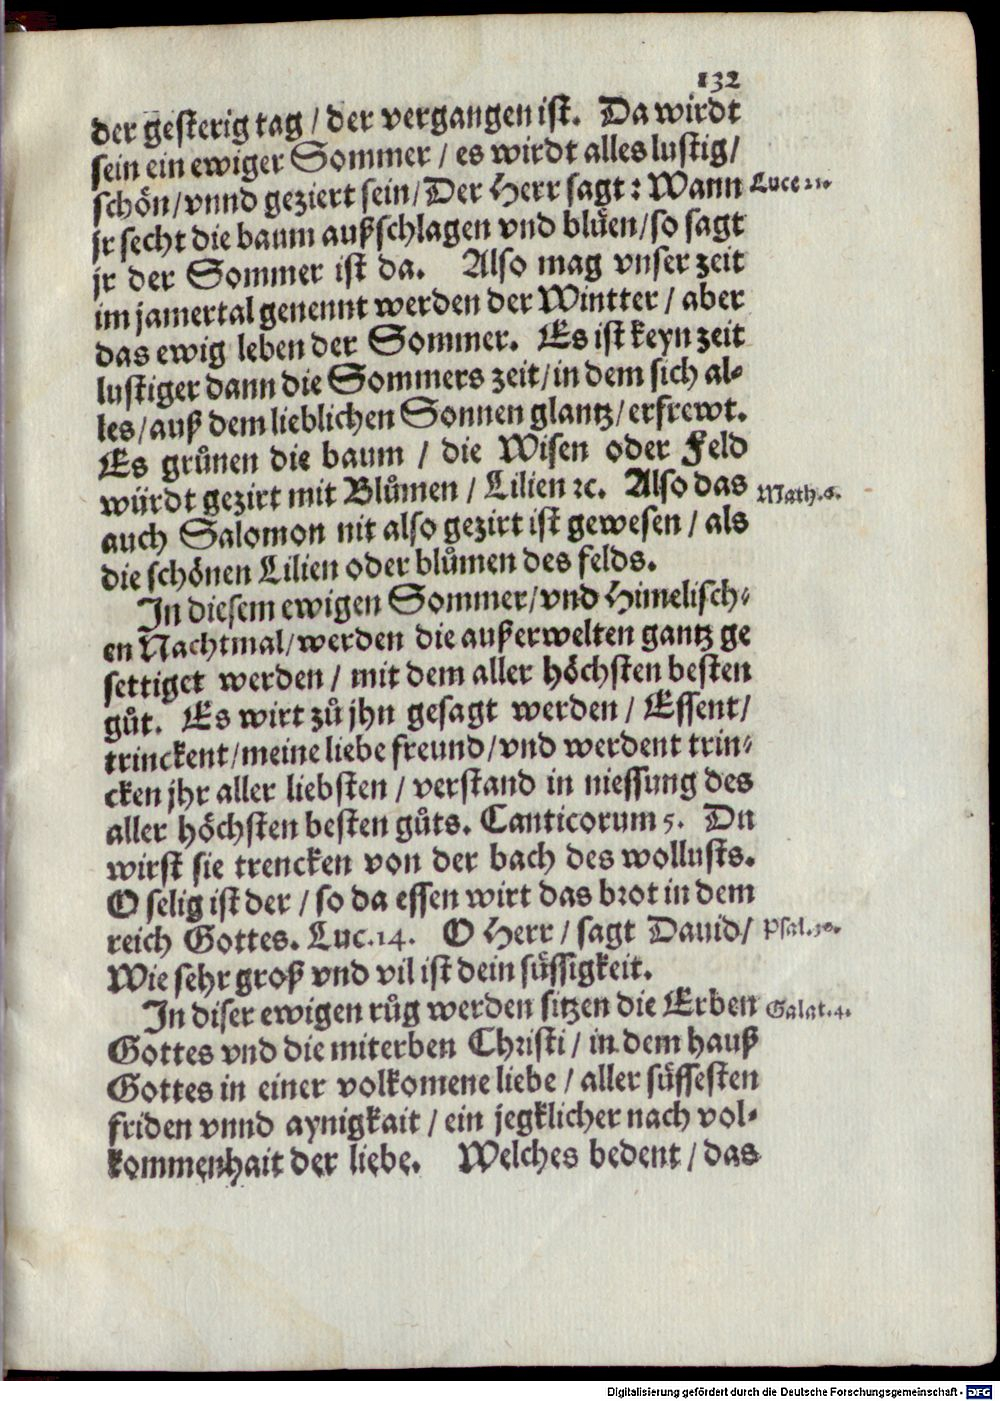 132
der gesterig tag / der vergangen ist. Da wirdt
sein ein ewiger Sommer / es wirdt alles lustig /
schön / vnnd geziert sein / Der Herr sagt : Wann
Luce 21.
jr secht die baum außschlagen vnd blůen / so sagt
jr der Sommer ist da. Also mag vnser zeit
im jamertal genennt werden der Wintter / aber
das ewig leben der Sommer. Es ist keyn zeit
lustiger dann die Sommers zeit / in dem sich al-
les / auß dem lieblichen Sonnen glantz / erfrewt.
Es grůnen die baum / die Wisen oder Feld
würdt gezirt mit Blůmen / Lilien ꝛc. Also das
Math. 6.
auch Salomon nit also gezirt ist gewesen / als
die schönen Lilien oder blůmen des felds.
In diesem ewigen Sommer / vnd Himelisch-
en Nachtmal / werden die außerwelten gantz ge
settiget werden / mit dem aller höchsten besten
gůt. Es wirt zů jhn gesagt werden / Essent /
trinckent / meine liebe freund / vnd werdent trin-
cken jhr aller liebsten / verstand in niessung des
aller höchsten besten gůts. Canticorum 5. Du
wirst sie trencken von der bach des wollusts.
O selig ist der / so da essen wirt das brot in dem
reich Gottes. Luc. 14. O Herr / sagt Dauid /
Psal. 30.
Wie sehr groß vnd vil ist dein süssigkeit.
In diser ewigen růg werden sitzen die Erben
Galat. 4.
Gottes vnd die miterben Christi / in dem hauß
Gottes in einer volkomene liebe / aller süssesten
friden vnnd aynigkait / ein jegklicher nach vol-
kommenhait der liebe. Welches bedeut / das
Digitalisierung gefördert durch die Deutsche Forschungsgemeinschaft - DFG